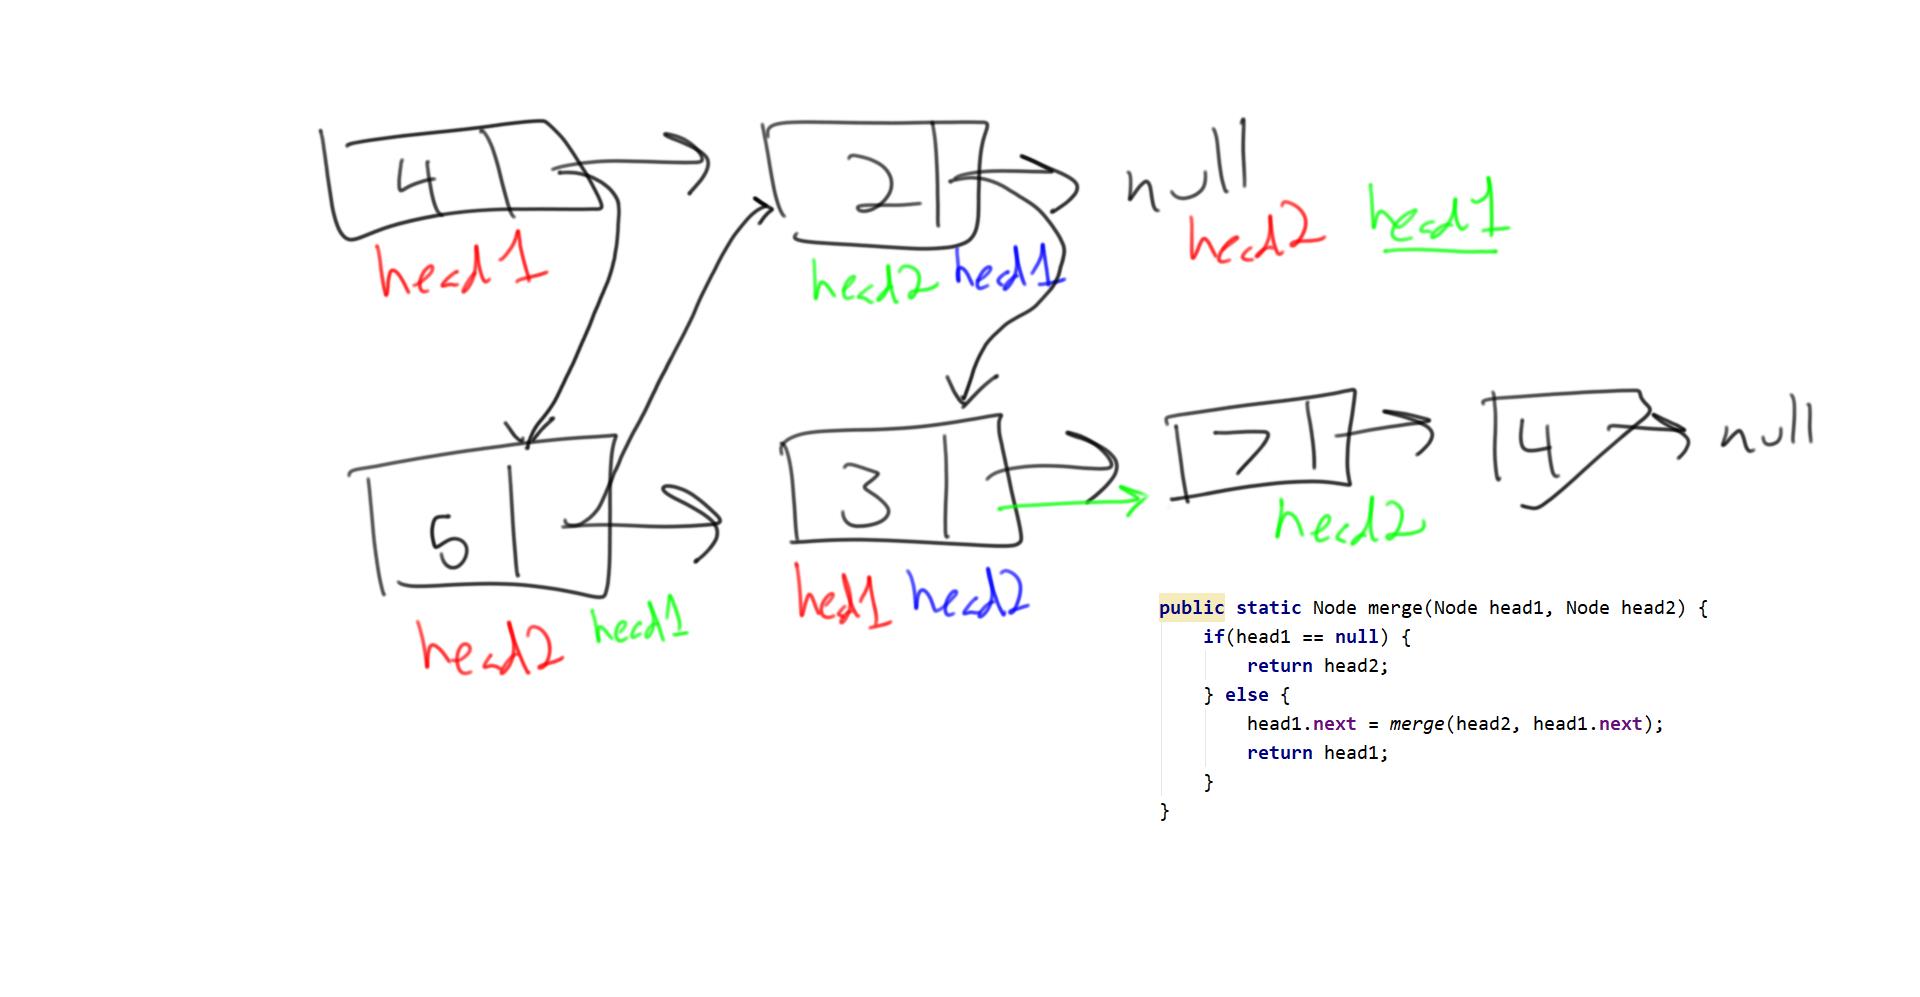 4 2 null
head1 head2 head1 head2 head1
5 3 7 4 null
head2 head1 hed1 head2 head2
public static Node merge(Node head1, Node head2) {
if(head1 == null) {
return head2;
} else {
head1.next = merge(head2, head1.next);
return head1;
}
}